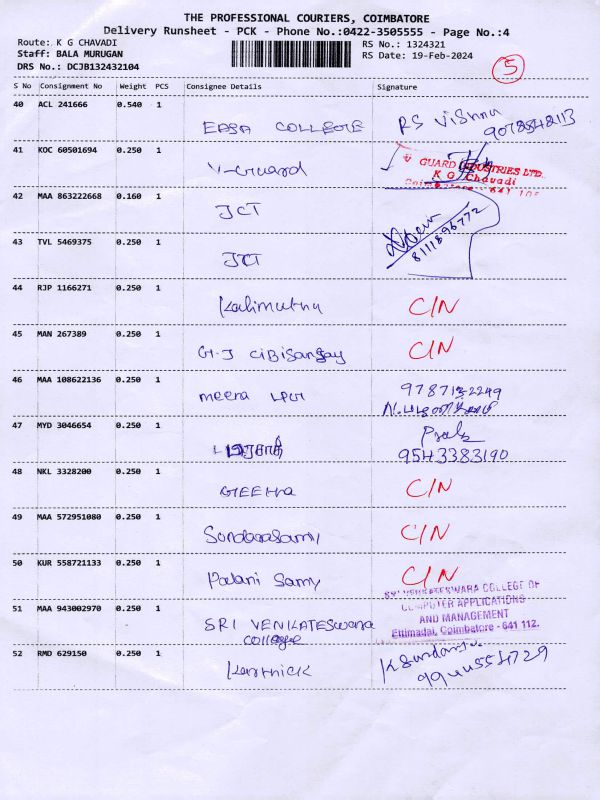 THE PROFESSIONAL COURIERS, COIMBATORE
Delivery Runsheet - PCK - Phone No.:0422-3505555 - Page No.:4
Route: K G CHAVADI RS No.: 1324321
Staff: BALA MURUGAN RS Date: 19-Feb-2024
DRS No.: DCJB132432104
5
S No Consignment No Weight PCS Consignee Details Signature
40 ACL 241666 0.540 1
EASA COLLEGE RS Vishnu
9078548113
41 KOC 60501694 0.250 1
V-Guard
GUARD INDUSTRIES LTD.
K G Chavadi
42 MAA 863222668 0.160 1
JCT
8111896772
43 TVL 5469375 0.250 1
JCT
44 RJP 1166271 0.250 1
Kalimuthu C/N
45 MAN 267389 0.250 1
G-J CIBISangjay C/N
46 MAA 108622136 0.250 1
meera
47 MYD 3046654 0.250 1
9543383190
48 NKL 3328200 0.250 1
GEETHA C/N
49 MAA 572951080 0.250 1
C/N
50 KUR 558721133 0.250 1
Palani Samy C/N
51 MAA 943002970 0.250 1
SRI VENKATESwara
College
SRI VENKATESWARA COLLEGE OF
COMPUTER APPLICATIONS
AND MANAGEMENT
Ettimadai, Coimbatore - 641 112.
52 RMD 629150 0.250 1
Karthick